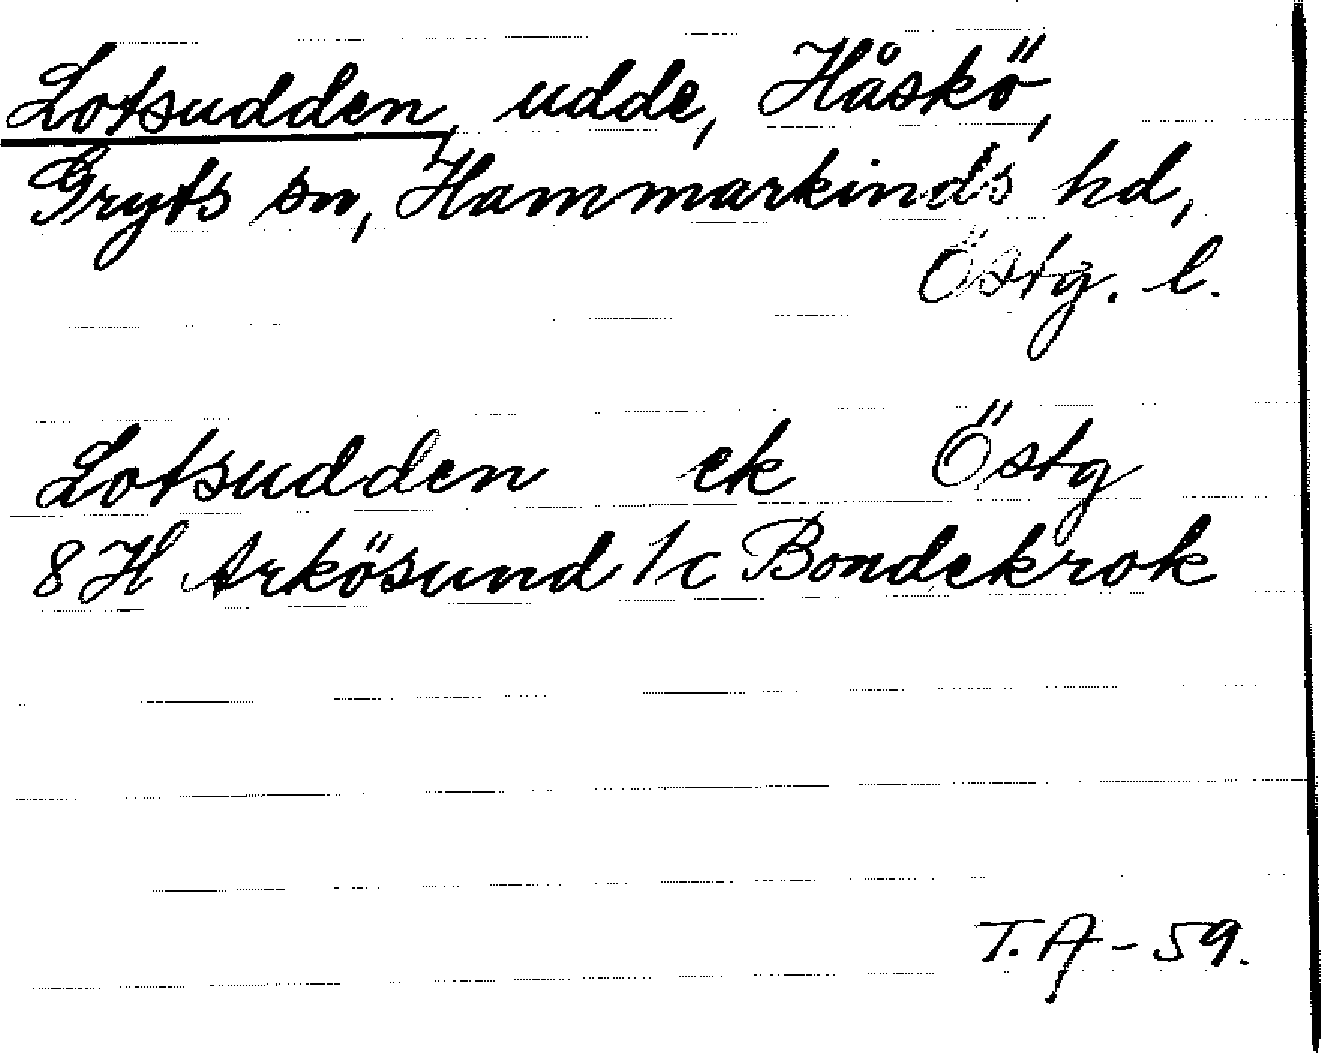 Lotsudden, udde, Håskö,
Gryts sn, Hammarkinds hd,
Östg. l.
Lotsudden ek Östg
8H Arkösund 1c Bondekrok
T.A-59.